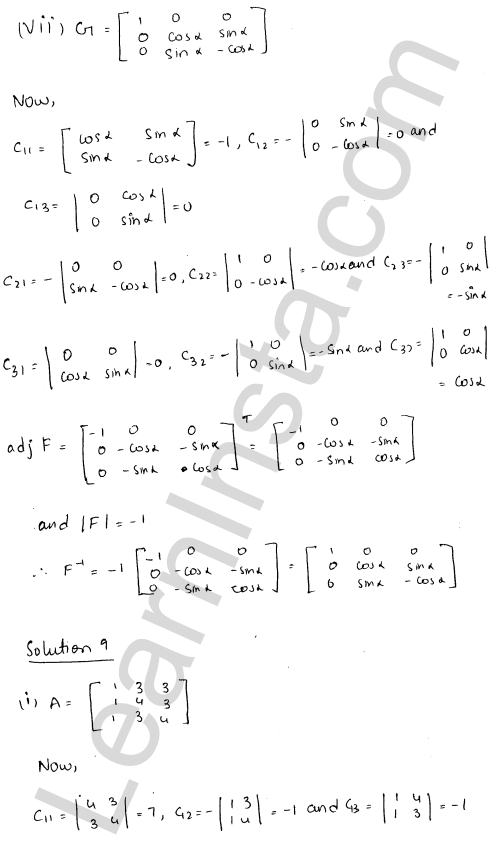 (Vii) G = [ 1 0 0 ; 0 cosα sinα ; 0 sinα -cosα ]
Now,
C11 = [ cosα sinα ; sinα -cosα ] = -1, C12 = - | 0 sinα ; 0 -cosα | = 0 and
C13 = | 0 cosα ; 0 sinα | = 0
C21 = - | 0 0 ; sinα -cosα | = 0, C22 = | 1 0 ; 0 -cosα | = -cosα and C23 = - | 1 0 ; 0 sinα |
= -sinα
C31 = | 0 0 ; cosα sinα | = 0, C32 = - | 1 0 ; 0 sinα | = -sinα and C33 = | 1 0 ; 0 cosα |
= cosα
adj F = [ -1 0 0 ; 0 -cosα -sinα ; 0 -sinα cosα ]ᵀ = [ -1 0 0 ; 0 -cosα -sinα ; 0 -sinα cosα ]
and |F| = -1
∴ F⁻¹ = -1 [ -1 0 0 ; 0 -cosα -sinα ; 0 -sinα cosα ] = [ 1 0 0 ; 0 cosα sinα ; 0 sinα -cosα ]
Solution 9
(i) A = [ 1 3 3 ; 1 4 3 ; 1 3 4 ]
Now,
C11 = | 4 3 ; 3 4 | = 7, C12 = - | 1 3 ; 1 4 | = -1 and C13 = | 1 4 ; 1 3 | = -1
LearnInsta.com